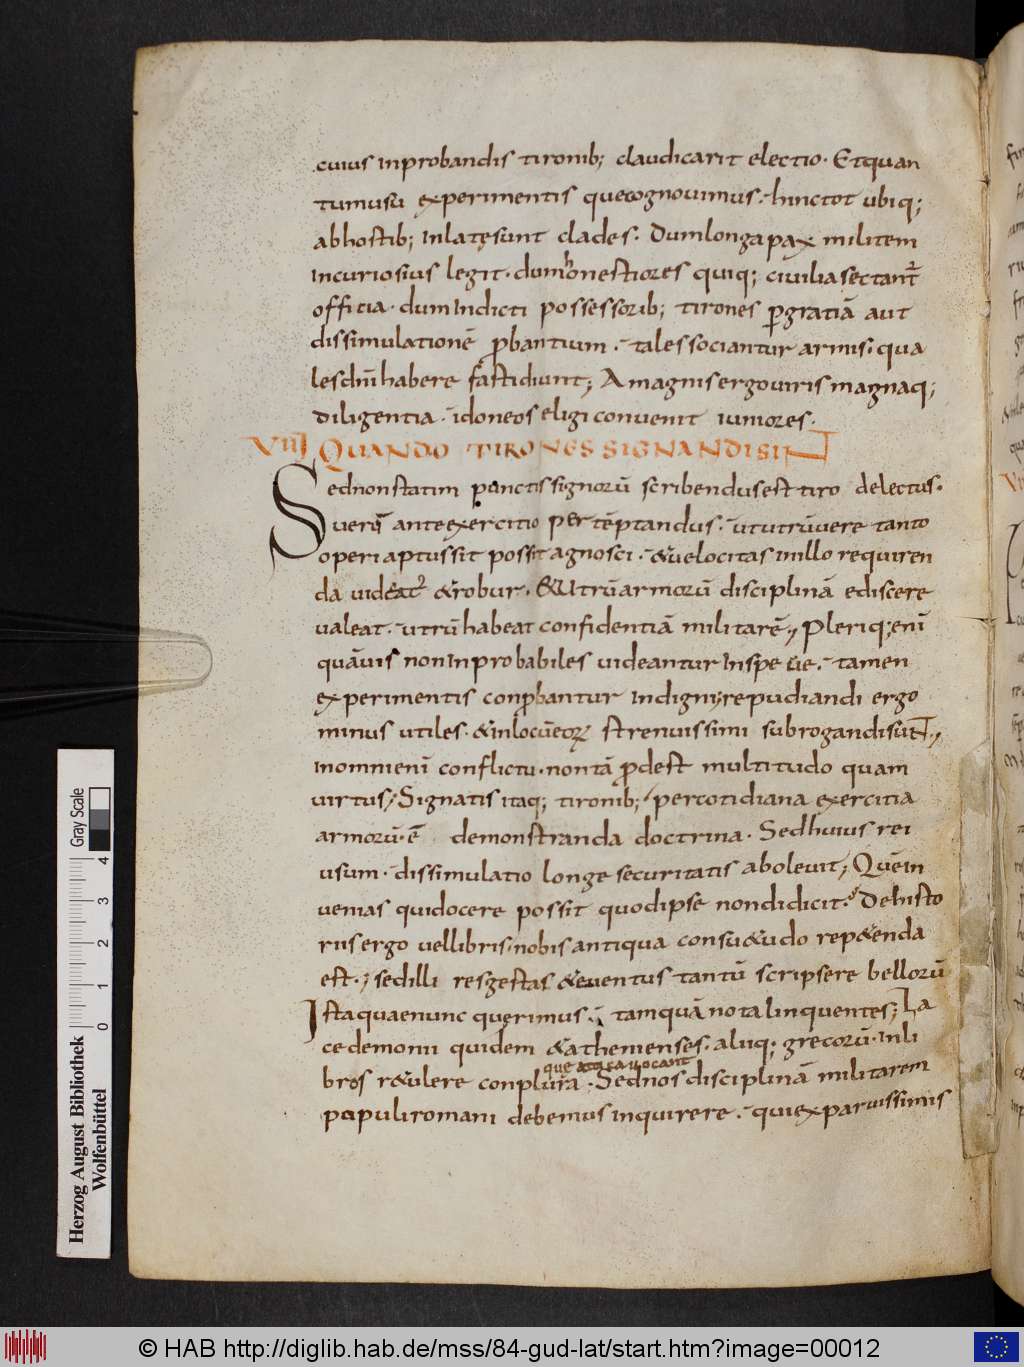 cuius inprobandis tironib; claudicarit electio· Etquan
tumusū experimentis quecognouimus·hinctot ubiq;
abhostib; inlatęsunt clades. dumlongapax militem
incuriosius legit· dumhonestiores quiq; ciuiliasectant᷑
officia· dumindicti possessorib; tirones ꝑgratiā aut
dissimulationē ꝓbantium· talessociantur armis· qua
lesdn̄ihabere fastidiunt; Amagnisergouirismagnaq;
diligentia· idoneoseligi conuenit iuniores·
VIII QUANDO TIRONES SIGNANDI SINT
Sednonstatim punctissignorū scribendusesttiro delectus·
uerū anteexercitio pertēptandus· ututrūuere tanto
operiaptussit possitagnosci· &uelocitas inillo requiren
da uideat᷑ &robur· &utrūarmorū disciplinā ediscere
ualeat· utrūhabeat confidentiā militarē; Pleriq;enī
quāuis noninprobabiles uideantur inspecie· tamen
experimentis conꝓbantur indigni;repudiandi ergo
minus utiles· &inlocūeoꝝ strenuissimi subrogandisunt;
inomnienī conflictu·nontā ꝓdest multitudo quam
uirtus; Signatis itaq; tironib; percotidiana exercitia
armorū·ē demonstranda doctrina· Sedhuius rei
usum· dissimulatio longe securitatis aboleuit; Quēin
uenias quidocere possit quodipse nondidicit· Dehisto
riisergo uellibris·nobisantiqua consu&udo rep&enda
est·; sedilli resgestas &euentus tantū scripsere bellorū
Istaquaenunc querimus· tamquā notalinquentes; La
cedemonii quidem &athenienses· aliiq; grecorū·inli
que ata ca uocant
bros r&ulere conplura· Sednosdisciplinā militarem
populiromani debemusinquirere· quiexparuissimis
Gray Scale
4
3
2
1
0
Herzog August Bibliothek
Wolfenbüttel
© HAB http://diglib.hab.de/mss/84-gud-lat/start.htm?image=00012